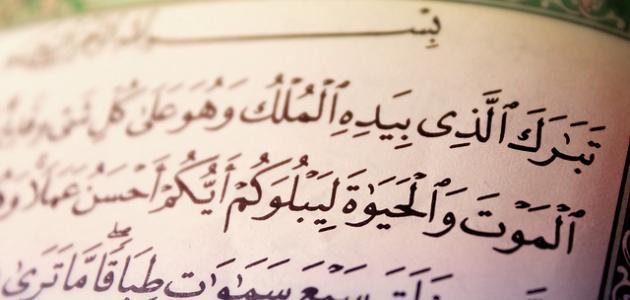 بِسْـ
تَبَٰرَكَ ٱلَّذِى بِيَدِهِ ٱلْمُلْكُ وَهُوَ عَلَىٰ كُلِّ شَىْءٍ
ٱلْمَوْتَ وَٱلْحَيَوٰةَ لِيَبْلُوَكُمْ أَيُّكُمْ أَحْسَنُ عَمَلًا
سَبْعَ سَمَٰوَٰتٍ طِبَاقًا ۖ مَّا تَرَىٰ